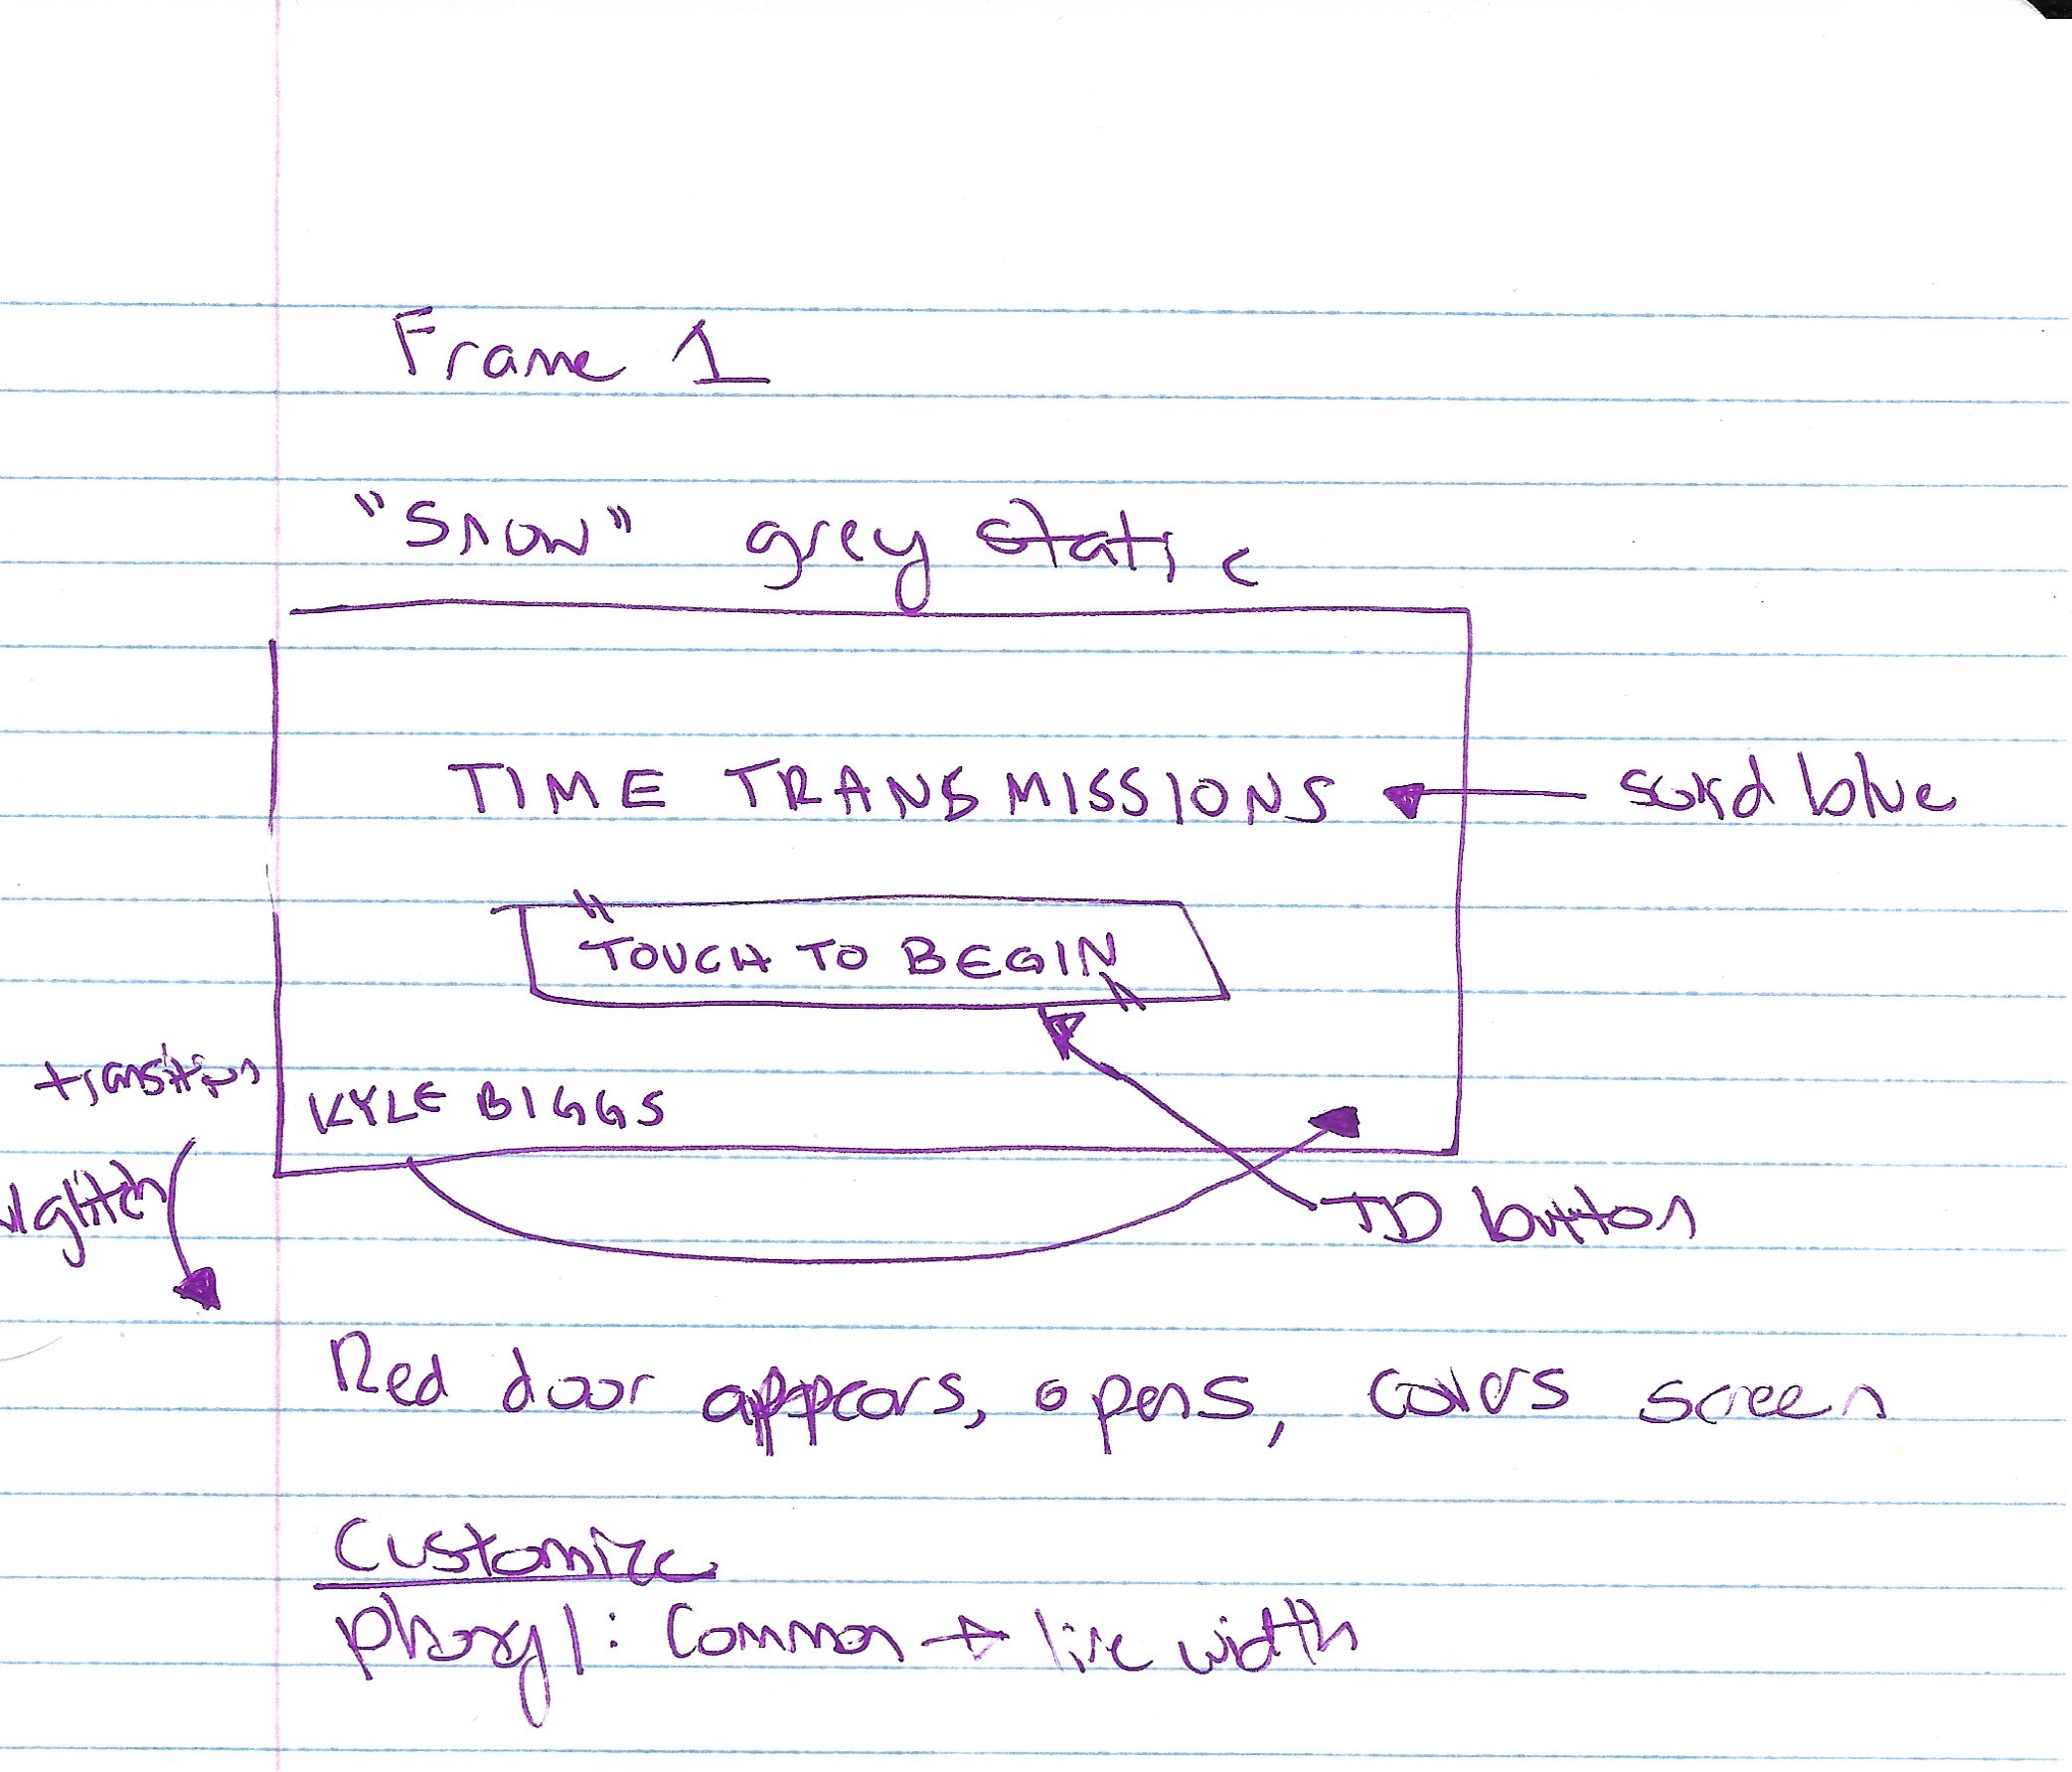 Frame 1
"Snow" grey static
TIME TRANSMISSIONS
solid blue
"TOUCH TO BEGIN"
transition
KYLE BIGGS
w/glitch
TD button
Red door appears, opens, covers screen
Customize
: Common → line width